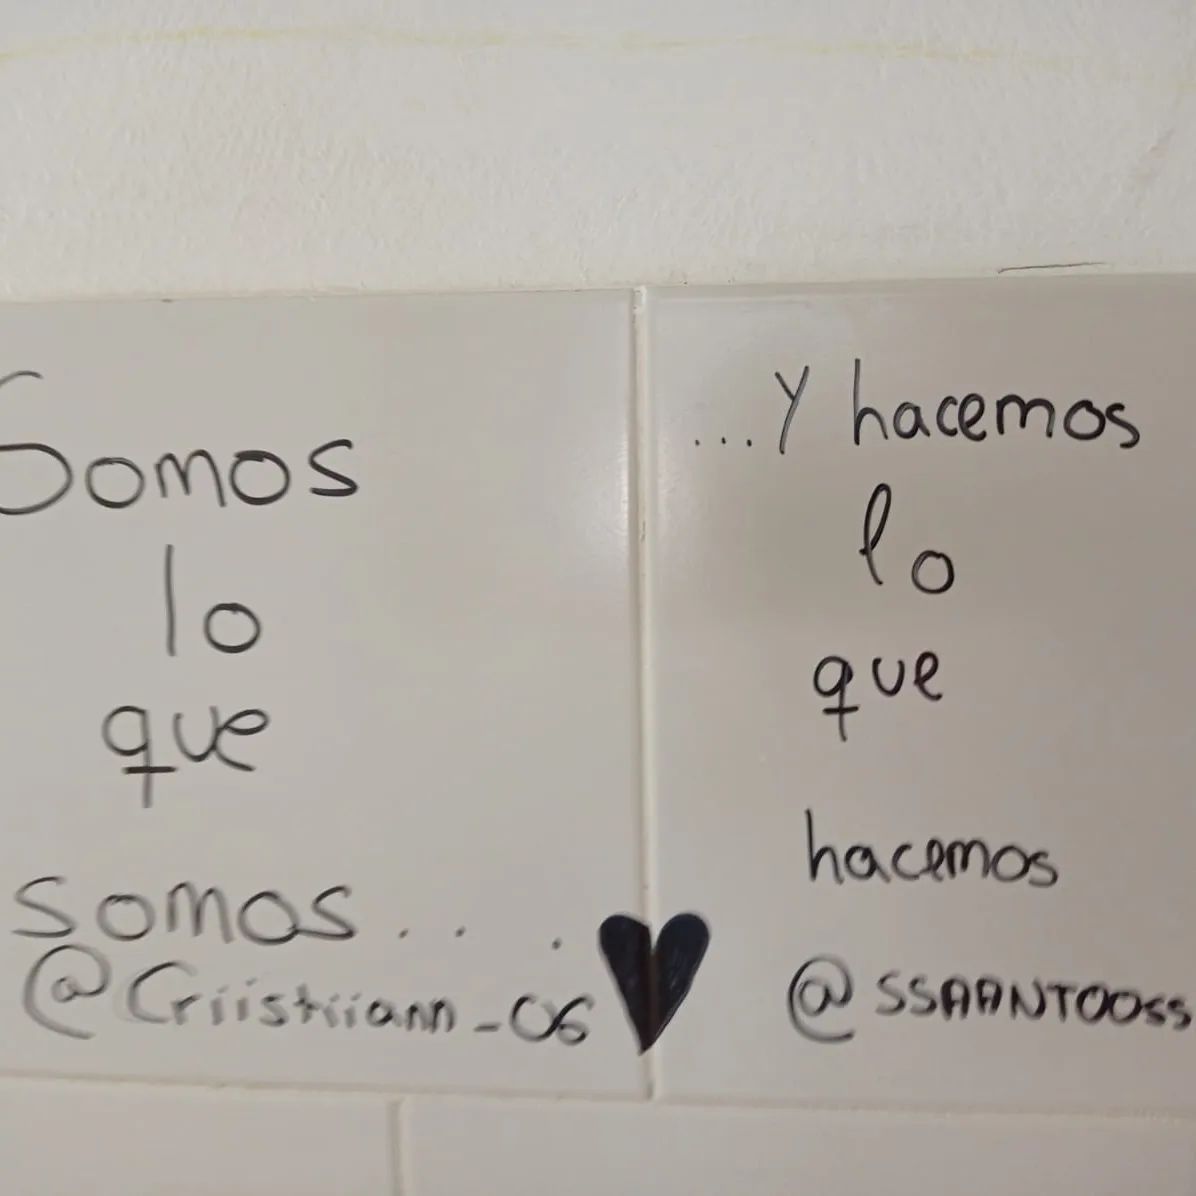 Somos
lo
que
somos...
@Criistiiann_06
...Y hacemos
lo
que
hacemos
@SSAANTOOSS